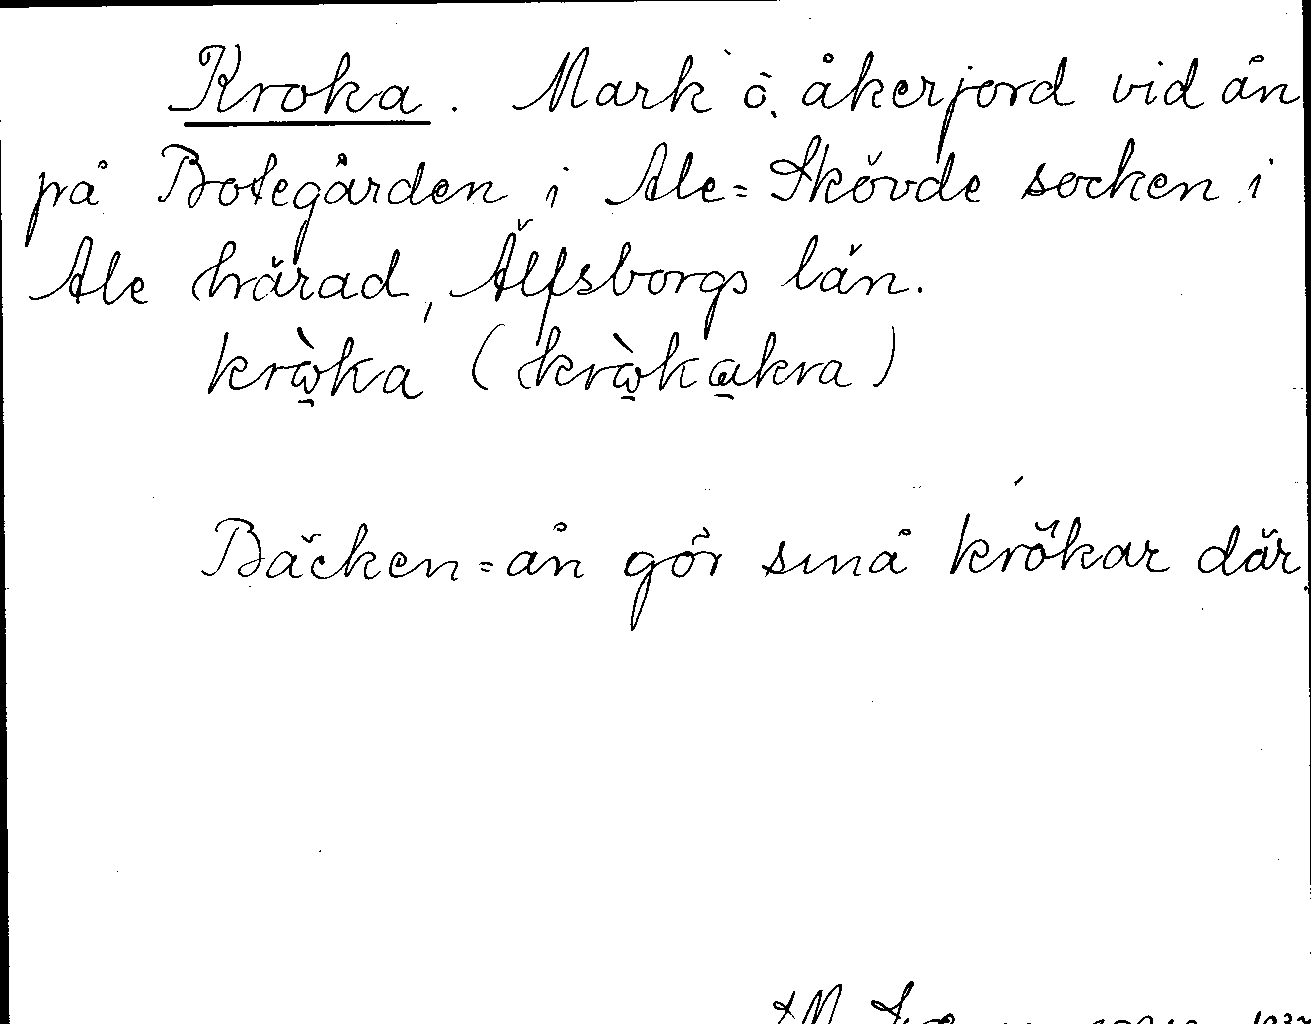 Kroka. Mark ö. åkerjord vid ån
på Botegården i Ale=Skövde socken i
Ale härad, Älfsborgs län.
krὼ̱ka (krὼ̱ka̱kra)
Bäcken=ån gör små krökar där.